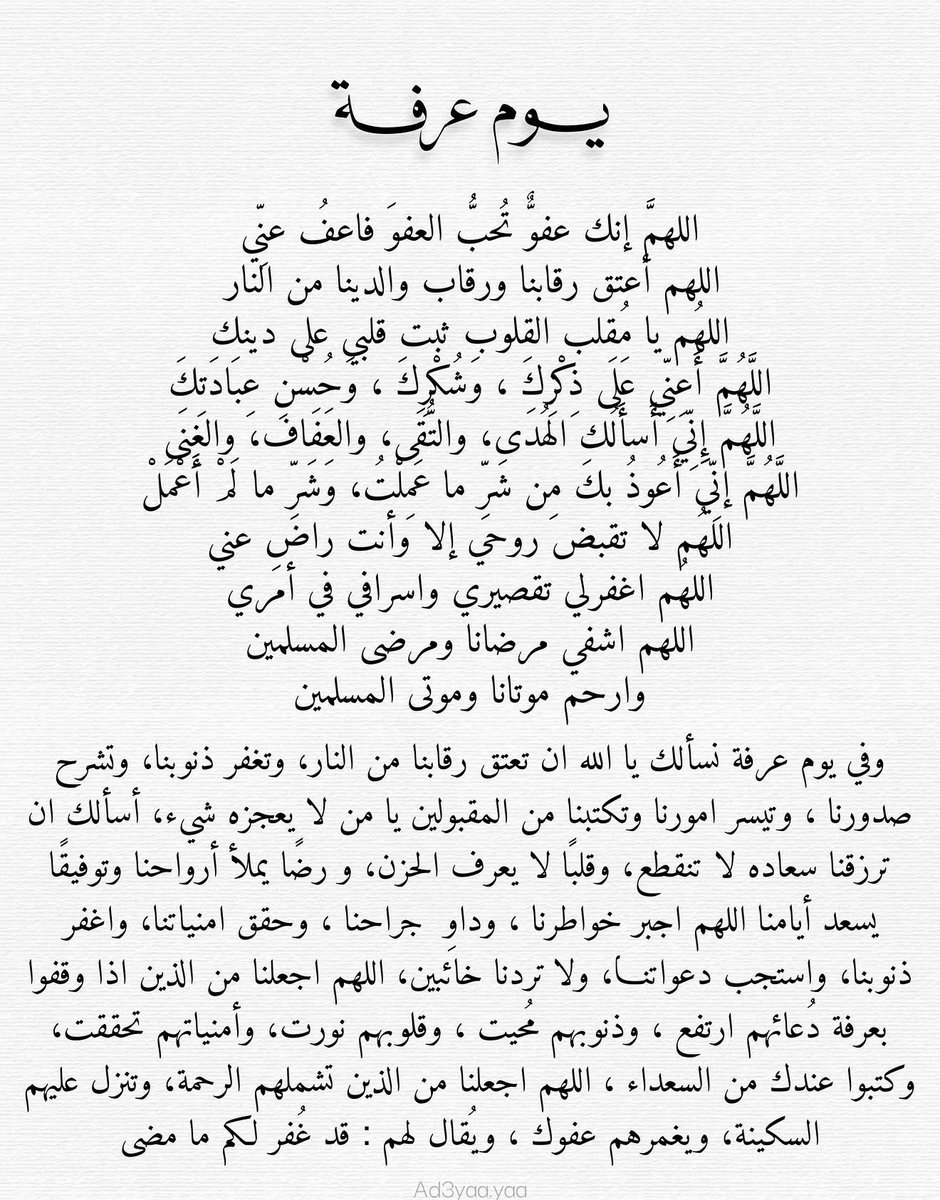 يوم عرفة
اللهمَّ إنك عفوٌّ تُحبُّ العفوَ فاعفُ عنِّي
اللهم أعتق رقابنا ورقاب والدينا من النار
اللهُم يا مُقلب القلوب ثبت قلبي على دينك
اللَّهُمَّ أَعِنِّي عَلَى ذِكْرِكَ ، وَشُكْرِكَ ، وَحُسْنِ عِبَادَتِكَ
اللَّهُمَّ إِنِّي أَسأَلُكَ الهُدَى، والتُّقَى، والعَفَافَ، والغِنَى
اللَّهُمَّ إنِّي أَعُوذُ بكَ مِن شَرِّ ما عَمِلْتُ، وَشَرِّ ما لَمْ أَعْمَلْ
اللَهُم لا تقبض روحي إلا وَأنت راضٍ عني
اللهُم اغفرلي تقصيري واسرافي في أمري
اللهم اشفي مرضانا ومرضى المسلمين
وارحم موتانا وموتى المسلمين
وفي يوم عرفة نسألك يا الله ان تعتق رقابنا من النار، وتغفر ذنوبنا، وتشرح
صدورنا ، وتيسر امورنا وتكتبنا من المقبولين يا من لا يعجزه شيء، أسألك ان
ترزقنا سعاده لا تنقطع، وقلبًا لا يعرف الحزن، و رضًا يملأ أرواحنا وتوفيقًا
يسعد أيامنا اللهم اجبر خواطرنا ، وداوِ جراحنا ، وحقق امنياتنا، واغفر
ذنوبنا، واستجب دعواتنا، ولا تردنا خائبين، اللهم اجعلنا من الذين اذا وقفوا
بعرفة دُعائهم ارتفع ، وذنوبهم مُحيت ، وقلوبهم نورت، وأمنياتهم تحققت،
وكتبوا عندك من السعداء ، اللهم اجعلنا من الذين تشملهم الرحمة، وتنزل عليهم
السكينة، ويغمرهم عفوك ، ويُقال لهم : قد غُفر لكم ما مضى
Ad3yaa.yaa